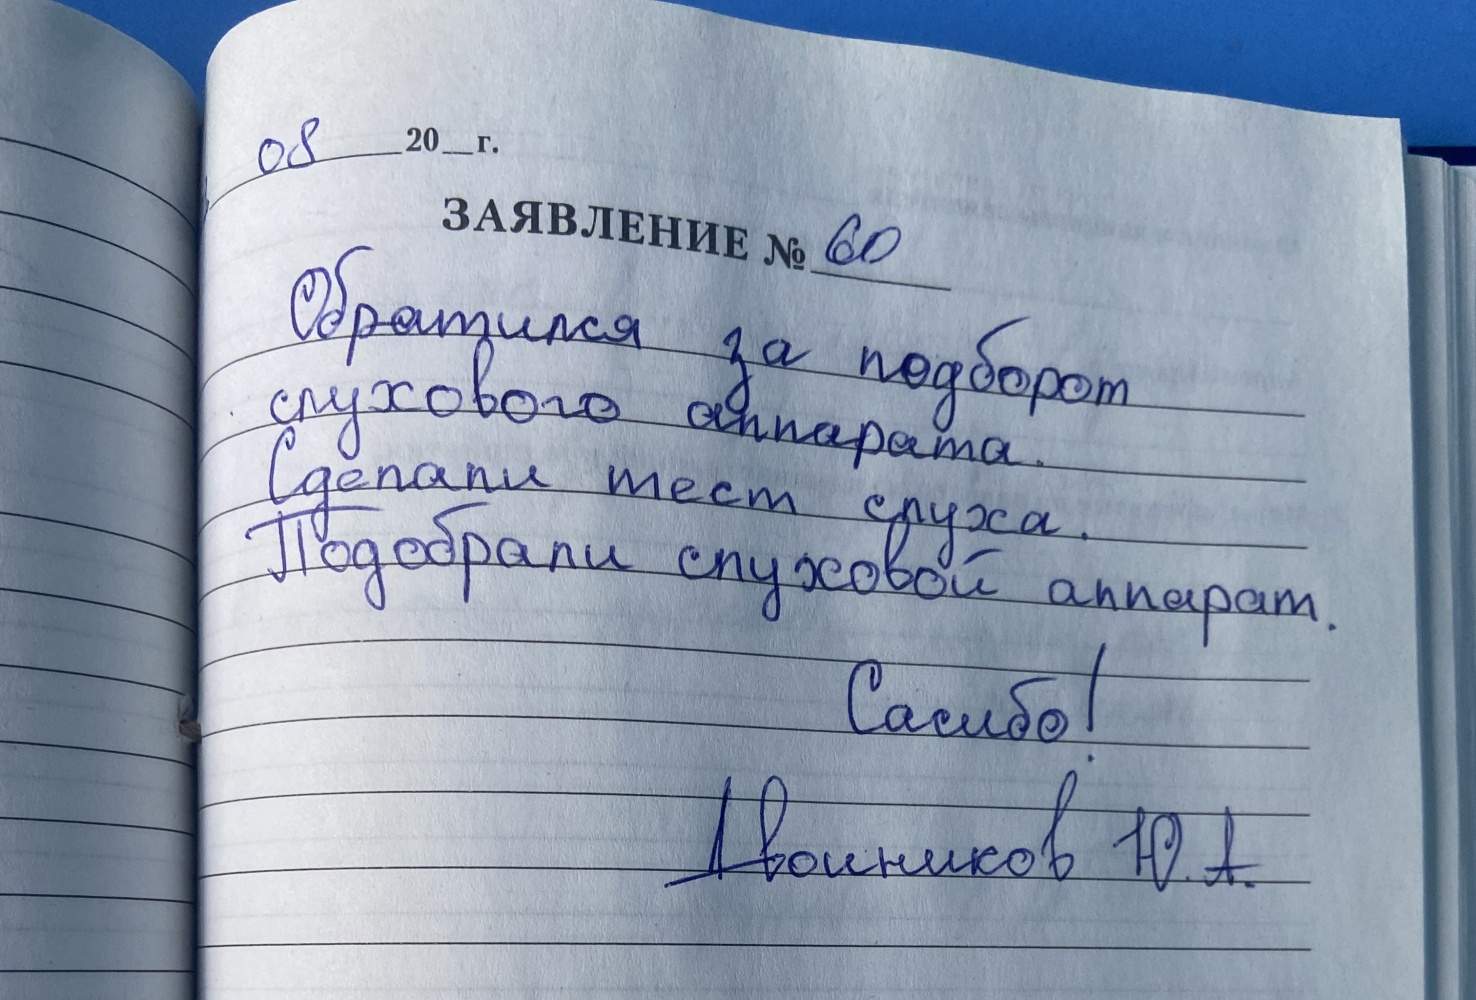 08 20__г.
ЗАЯВЛЕНИЕ № 60
Обратился за подборот
слухового аппарата.
Сделали тест слуха.
Подобрали слуховой аппарат.
Сасибо!
Двойников Ю.А.